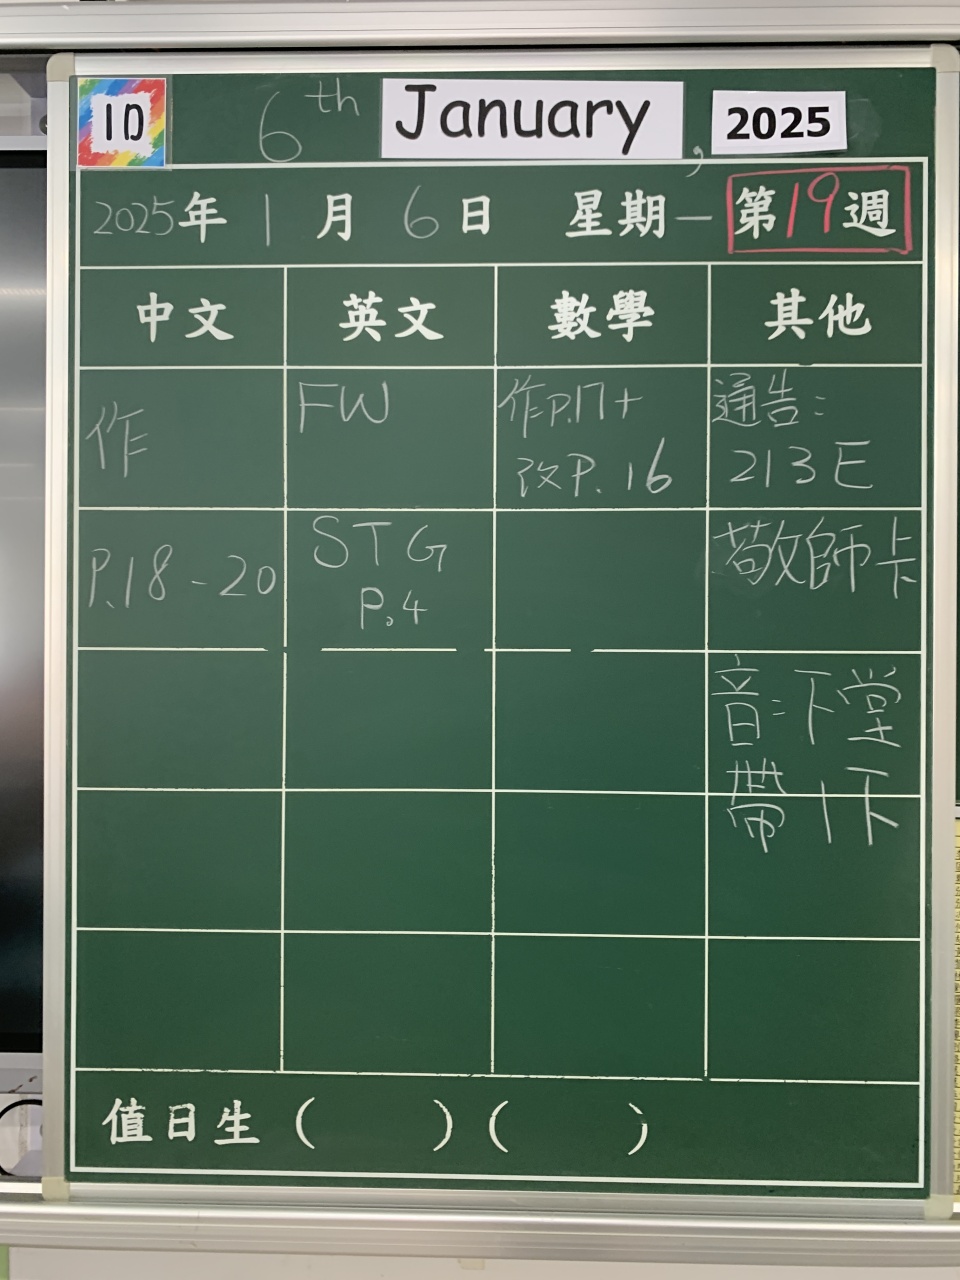 1D
6th January, 2025
2025年 1月 6日 星期一 第19週
中文 英文 數學 其他
作 FW 作P.17+ 通告:
改P.16 213E
P.18-20 STG 敬師卡
P.4
音:下堂
帶1下
值日生( )( )